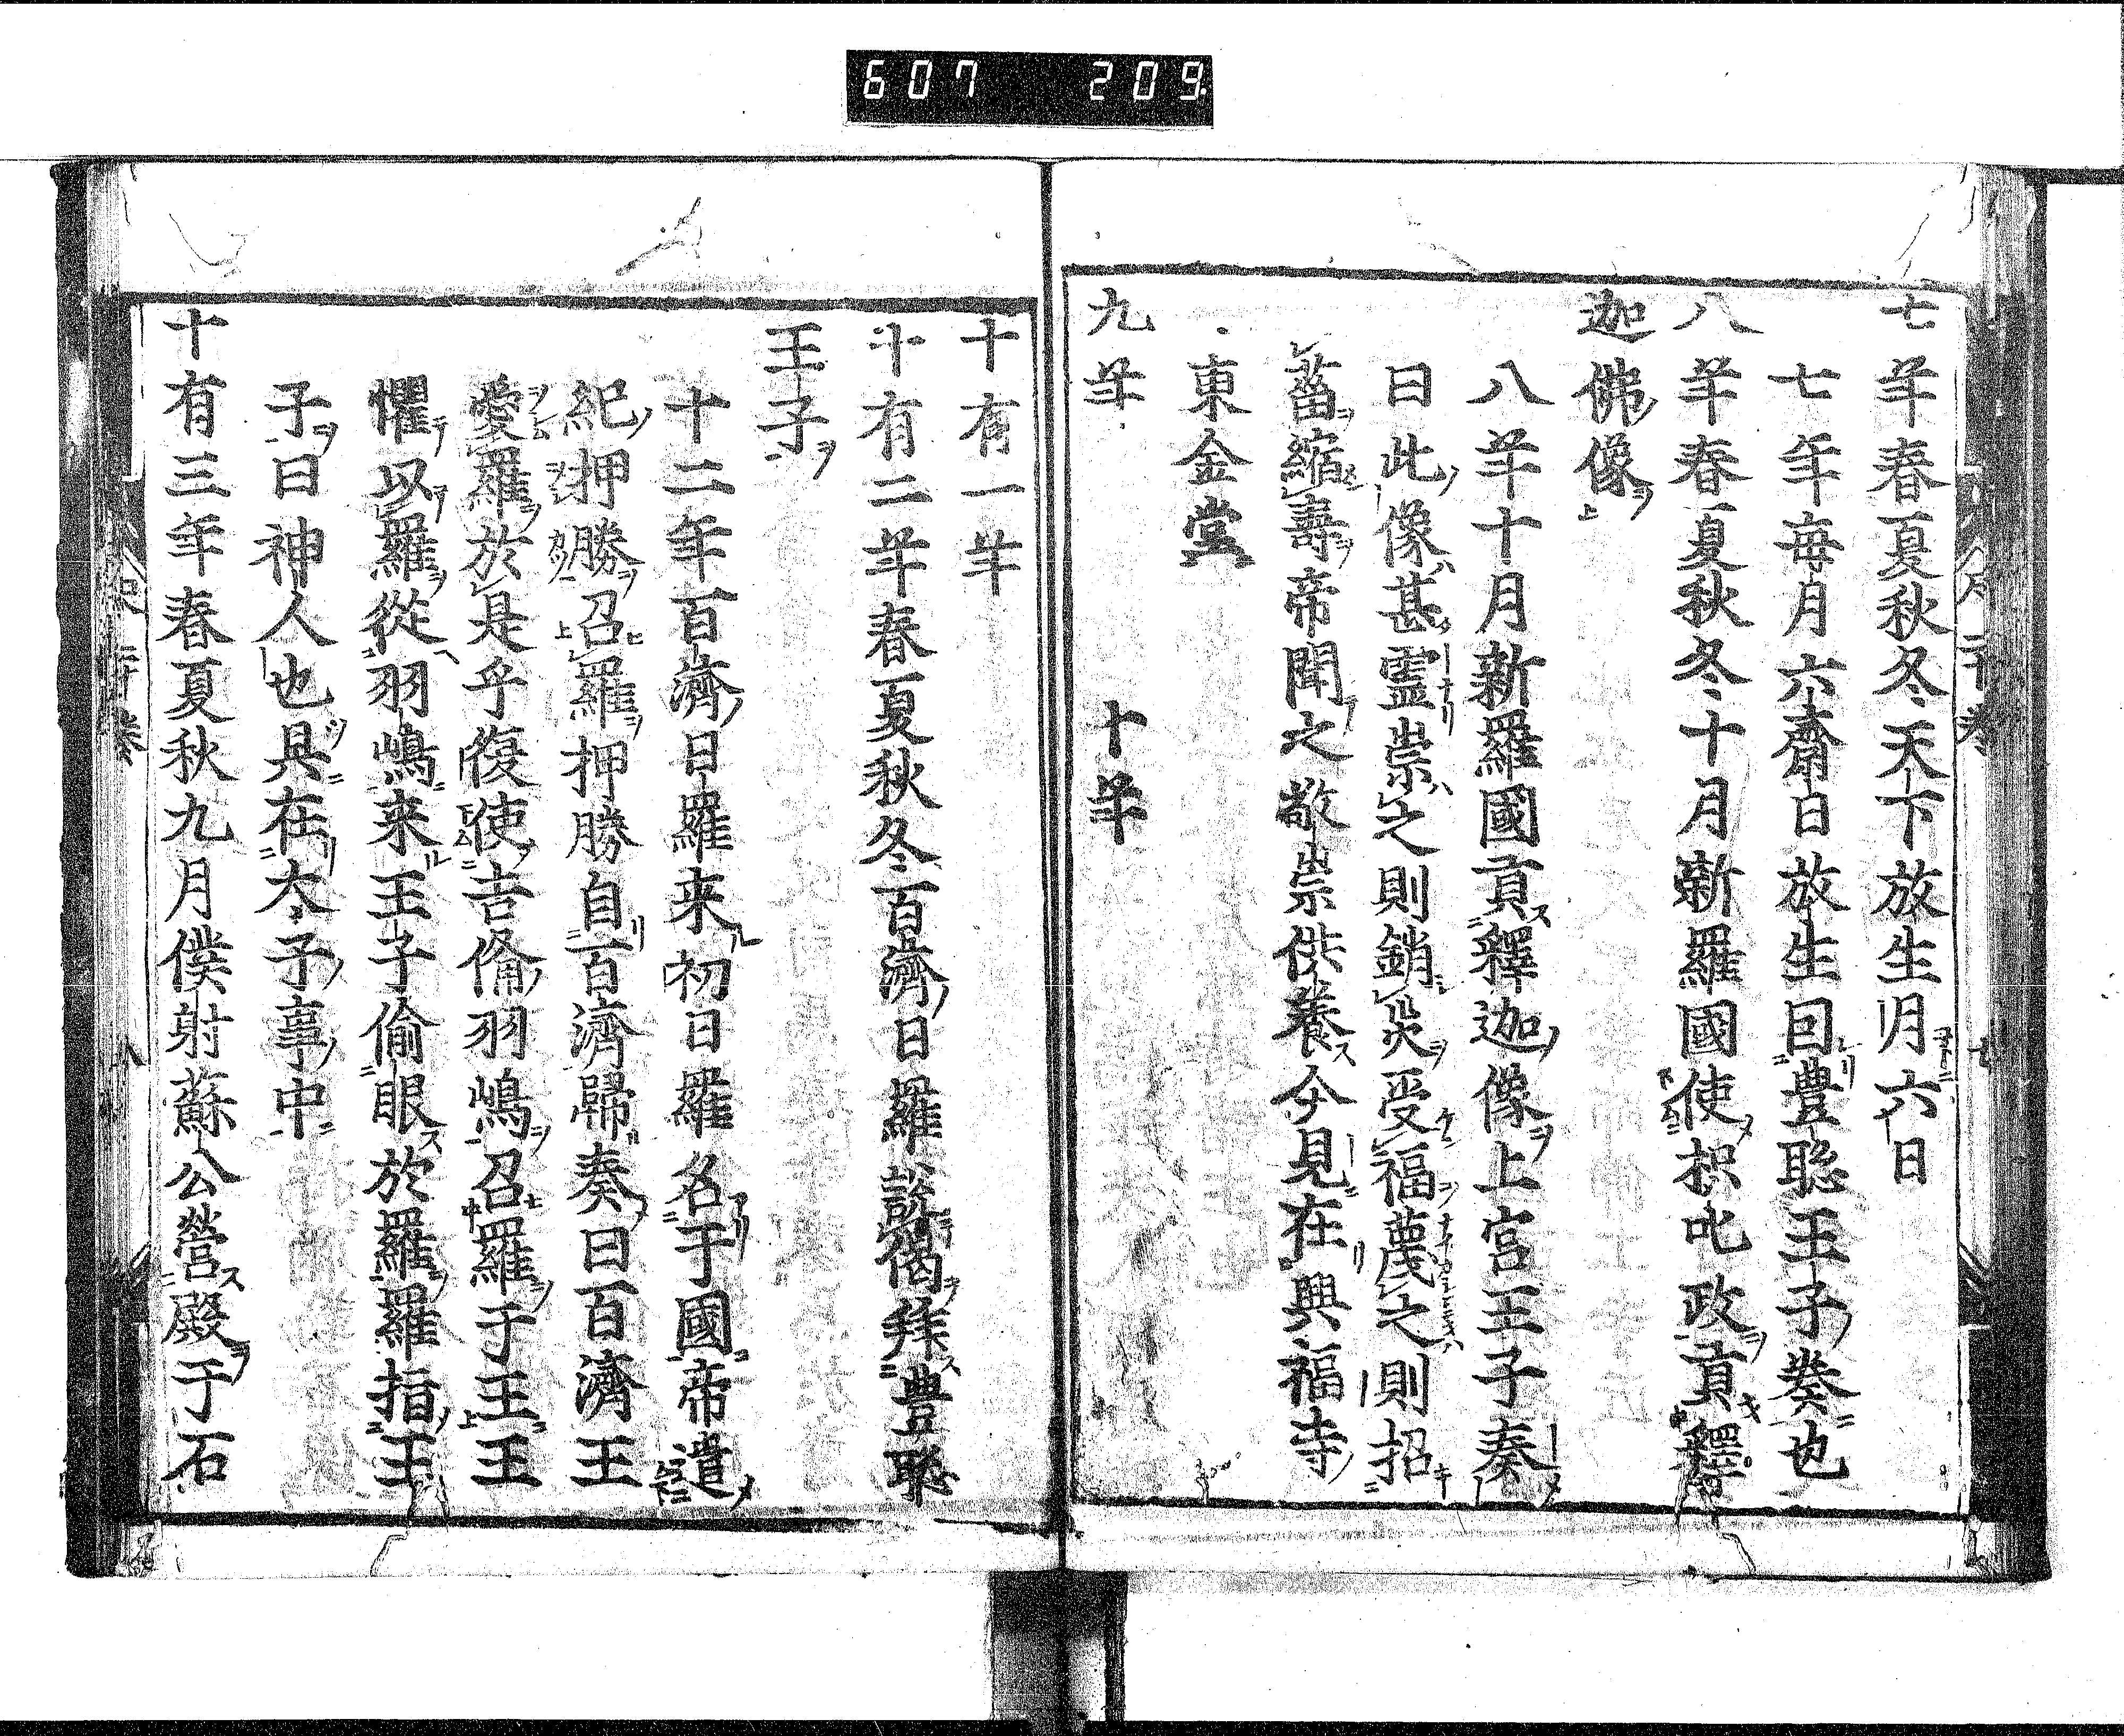 607 209
七年春夏秋冬天下放生月六日
七年每月六齋日放生因豊聡王子奏也
八年春夏秋冬十月新羅國使枳叱政貢釋
迦佛像
八年十月新羅國貢釋迦像上宮王子奏
曰此像甚霊崇之則銷災受福蔑之則招
菑縮壽帝聞之敬崇供養今見在興福寺
東金堂
九年 十年
十有一年
十有二年春夏秋冬百濟日羅說偈拜豊聡
王子
十二年百濟日羅来初日羅名于國帝遣
紀押勝召羅押勝自百濟歸奏曰百濟王
愛羅於是乎復使吉俻羽嶋召羅于王王
懼以羅從羽嶋来王子偷眼於羅羅指王
子曰神人也具在太子事中
十有三年春夏秋九月僕射蘇公營殿于石